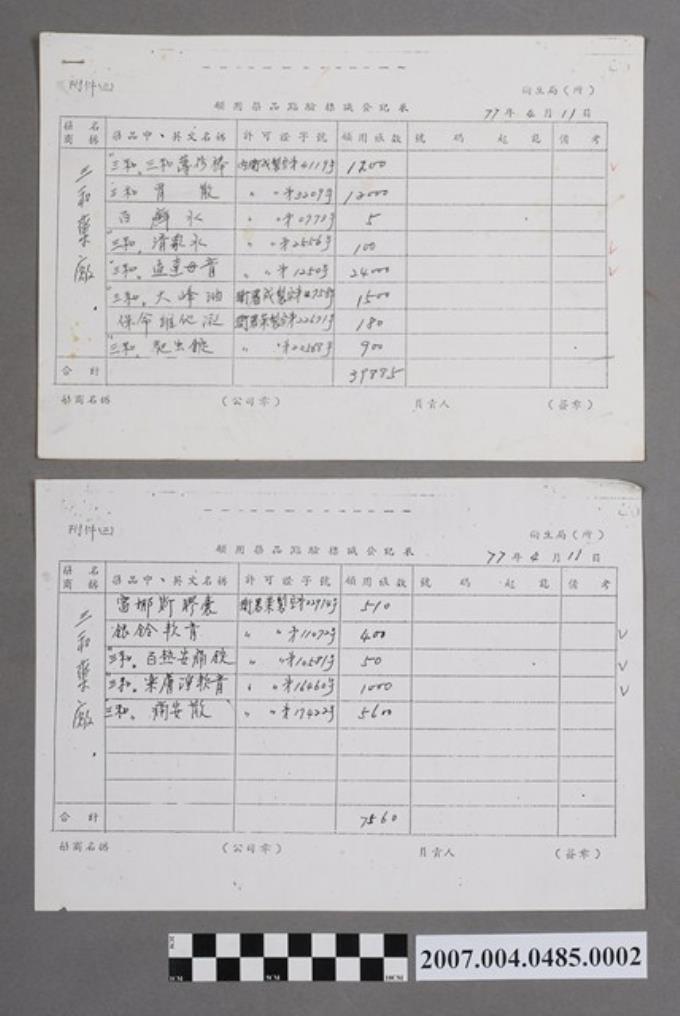 附件(二)
衛生局(所)
領用藥品點驗標識登記表
77年4月11日
藥商名稱 藥品中、英文名稱 許可證字號 領用紙數 號碼起訖 備考
三和藥廠
"三和"三和薄珍棒 內衛成製字第4119號 1200
三和胃散 〃 〃第3209號 12000
百鮮水 〃 〃第0773號 5
"三和"清氣水 〃第2556號 100
"三和" 〃 〃第1250號 24000
"三和"大峰油 衛署成製字第 1500
保命維他 衛署藥製字第22671號 180
"三和"驅虫錠 〃 900
合計 39885
藥商名稱 (公司章) 負責人 (簽章)
附件(二)
衛生局(所)
領用藥品點驗標識登記表
77年4月11日
藥商名稱 藥品中、英文名稱 許可證字號 領用紙數 號碼起訖 備考
三和藥廠
富娜斯膠囊 衛署藥製字第22914號 510
銀鈴軟膏 〃 〃第11072號 400
"三和"百熱安痛錠 〃 〃第10581號 50
"三和"樂膚淨軟膏 〃 〃第16460號 1000
"三和"痛安散 〃 〃第17422號 5600
合計 7560
藥商名稱 (公司章) 負責人 (簽章)
1CM 5CM 10CM
2007.004.0485.0002